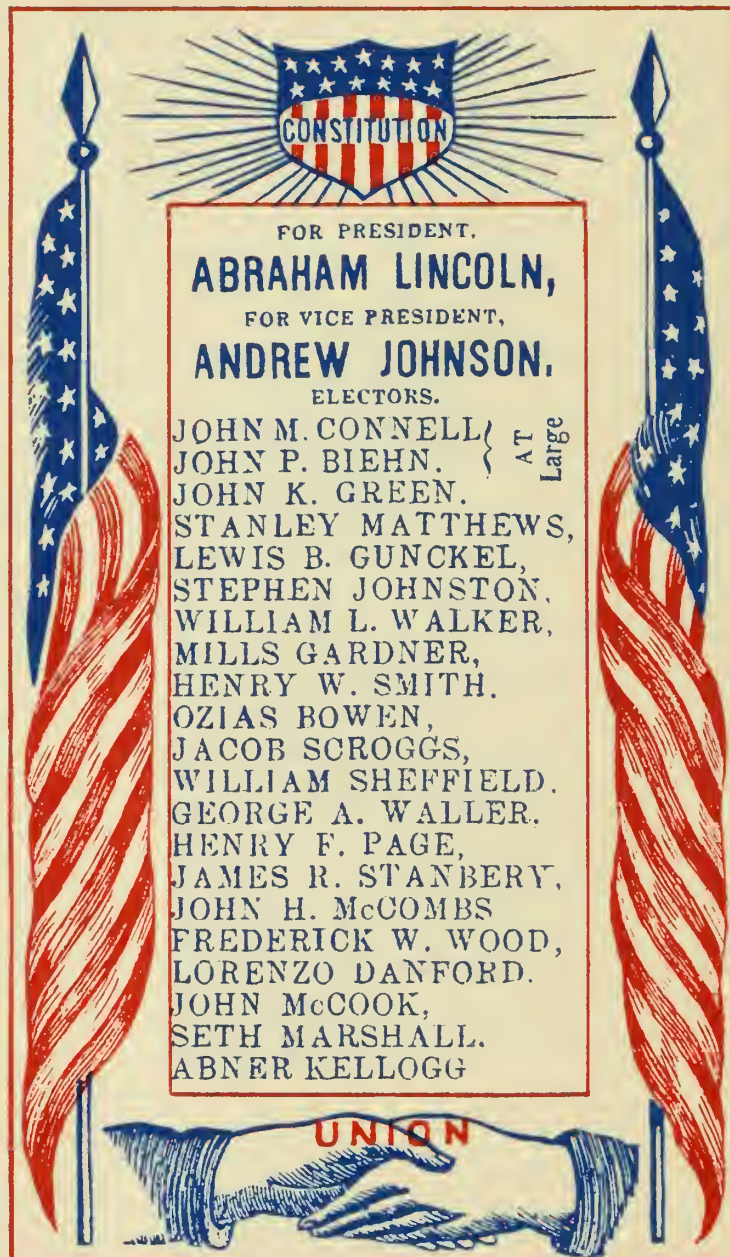 CONSTITUTION
FOR PRESIDENT,
ABRAHAM LINCOLN,
FOR VICE PRESIDENT,
ANDREW JOHNSON,
ELECTORS.
JOHN M. CONNELL
JOHN P. BIEHN.
AT
Large
JOHN K. GREEN.
STANLEY MATTHEWS,
LEWIS B. GUNCKEL,
STEPHEN JOHNSTON,
WILLIAM L. WALKER,
MILLS GARDNER,
HENRY W. SMITH.
OZIAS BOWEN,
JACOB SCROGGS,
WILLIAM SHEFFIELD.
GEORGE A. WALLER.
HENRY F. PAGE,
JAMES R. STANBERY,
JOHN H. McCOMBS
FREDERICK W. WOOD,
LORENZO DANFORD.
JOHN McCOOK,
SETH MARSHALL.
ABNER KELLOGG
UNION